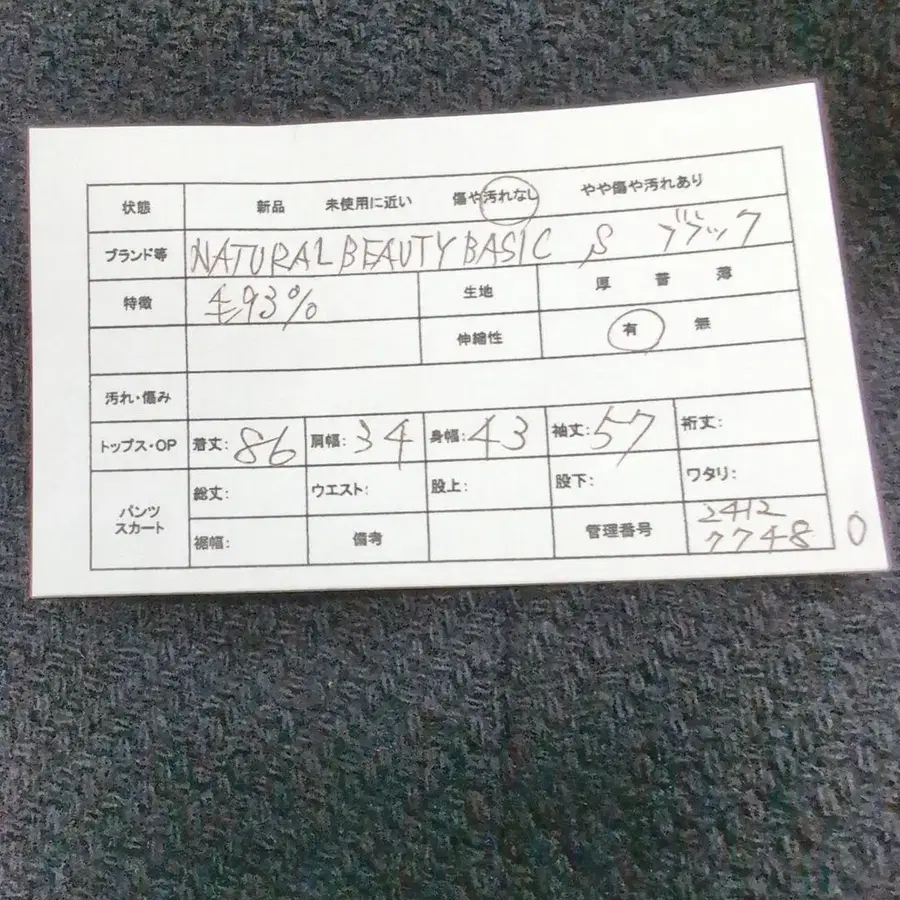 状態 新品 未使用に近い 傷や汚れなし やや傷や汚れあり
ブランド等 NATURAL BEAUTY BASIC S ブラック
特徴 毛93% 生地 厚 普 薄
伸縮性 有 無
汚れ・傷み
トップス・OP 着丈: 86 肩幅: 34 身幅: 43 袖丈: 57 裄丈:
パンツ スカート 総丈: ウエスト: 股上: 股下: ワタリ:
裾幅: 備考 管理番号 2412 7748 0